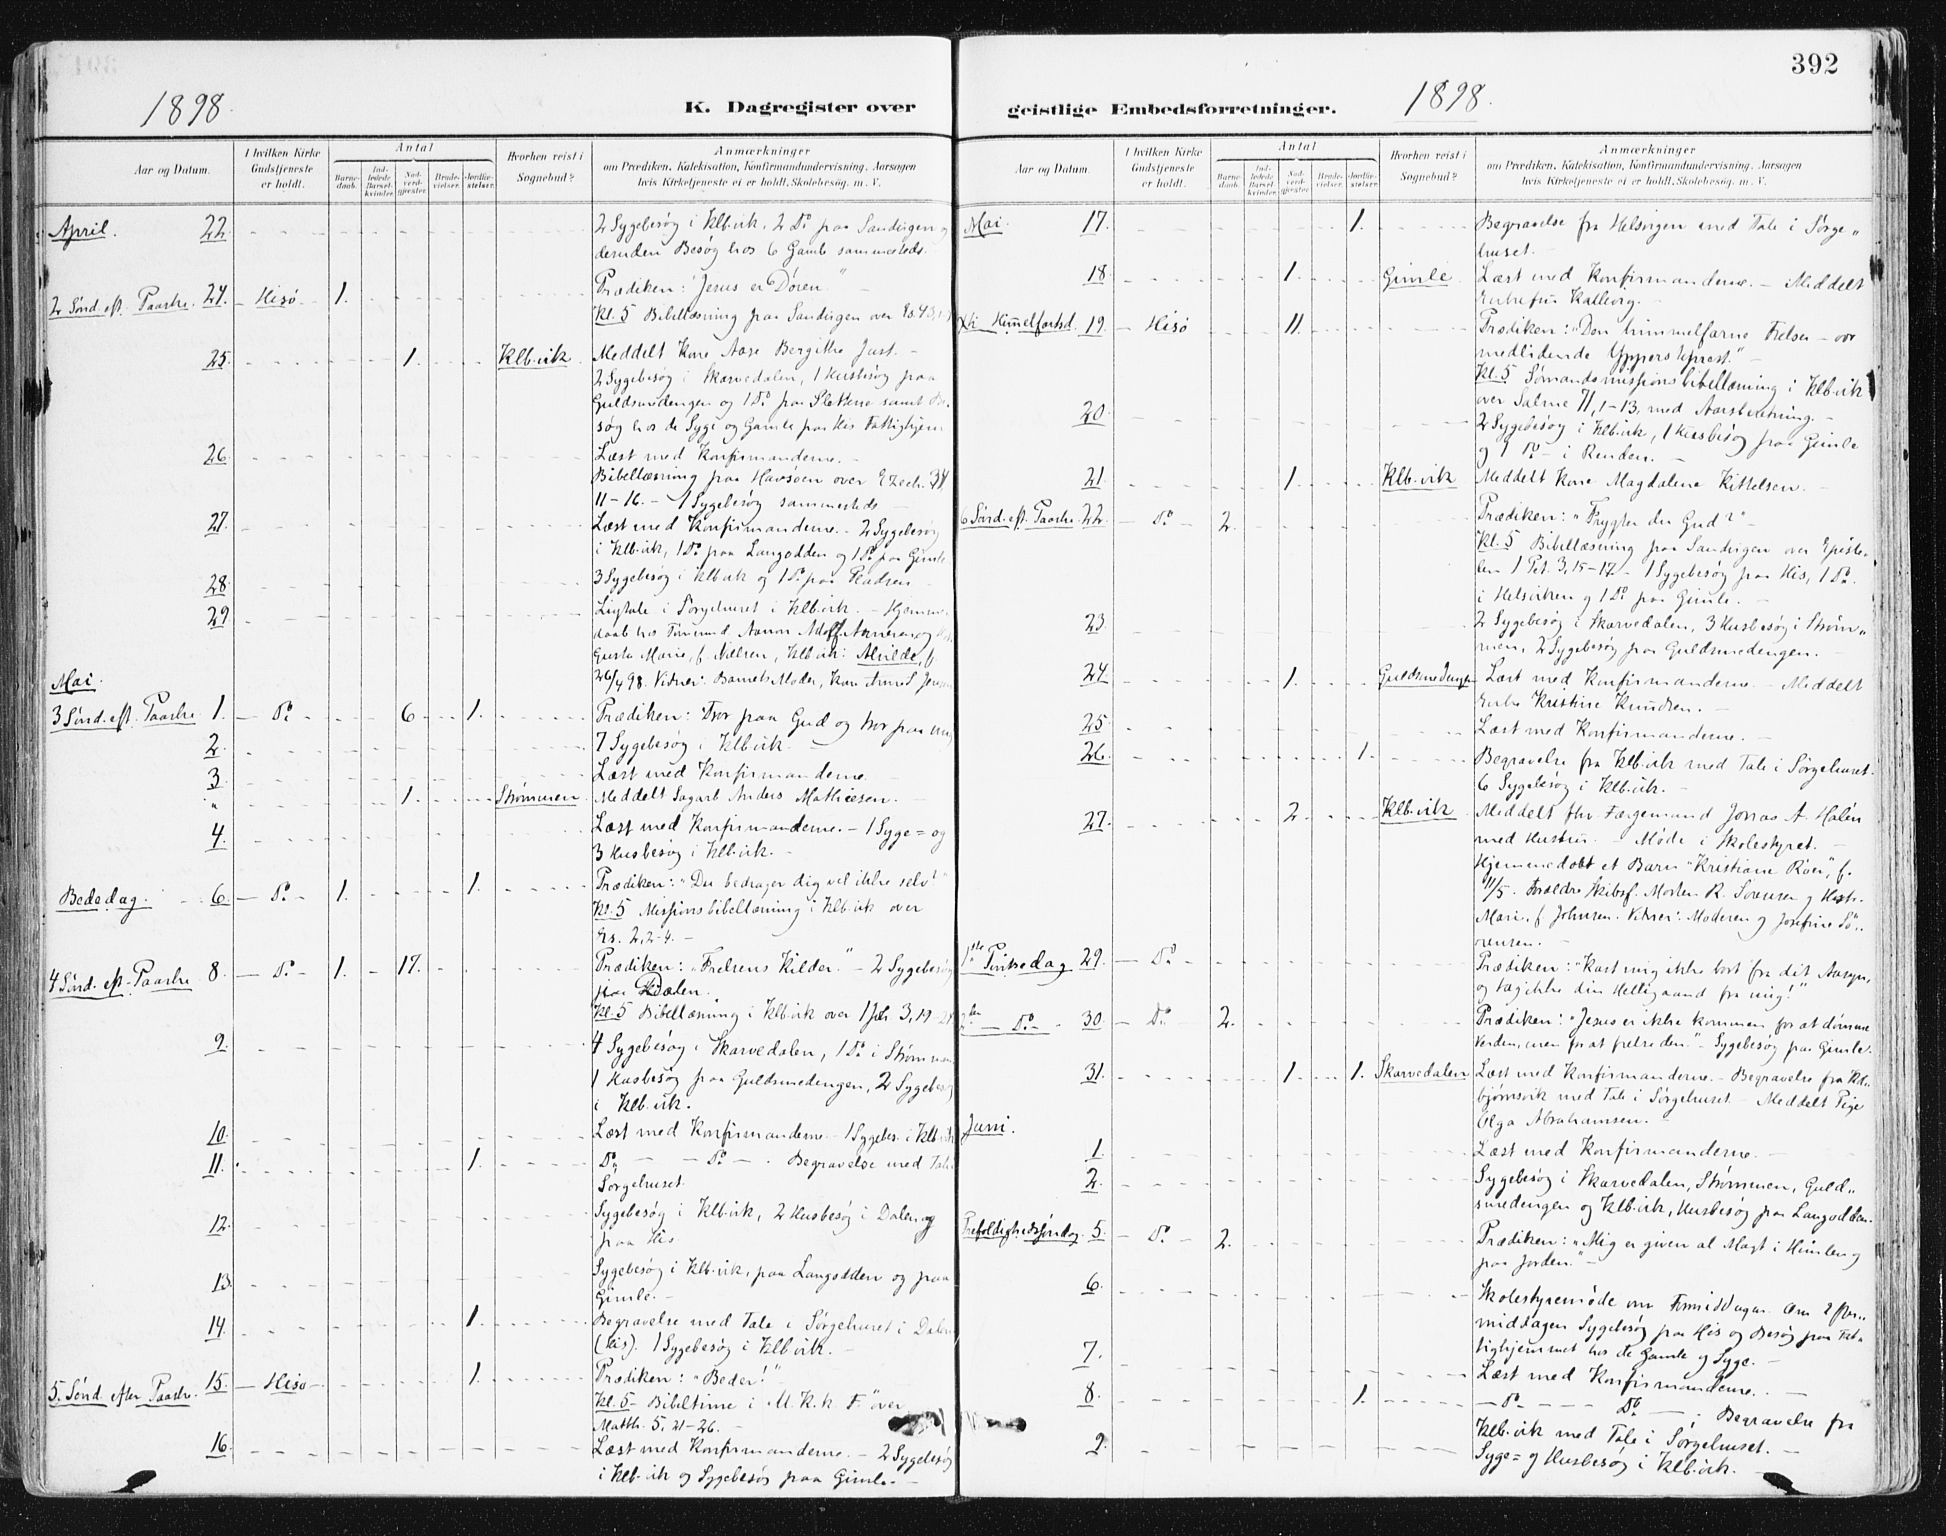 392
1898.
K. Dagregister over
Aar og Datum.
I hvilken Kirke Gudstjeneste er holdt.
Antal
Barnedaab.
Indledede Barselkvinder.
Nadverdgjester.
Brudevielser.
Jordfæstelser.
Hvorhen reist i Sognebud?
Anmærkninger
om Prædiken, Katekisation, Konfirmandundervisning, Aarsagen
hvis Kirketjeneste ei er holdt, Skolebesøg, m. V.
April. 22. 2 Sygebesøg i Klb.vik, 2 Do paa Sandvigen og
desuden Besøg hos 6 Gamle sammesteds.
2 Sønd. eft. Paaske. 24. Hisø 1. Prædiken: "Jesus er Døren"
Kl. 5 Bibellæsning paa Sandvigen over Es. 43,
25. 1. Klb.vik Meddelt Kone Aase Bergithe Just.
2 Sygebesøg i Skarvedalen, 1 Husbesøg paa
Guldsmedengen og 1 Do paa Slekene samt Be-
søg hos de Syge og Gamle paa His Fattighjem
26. Læst med Konfirmanderne.
Bibellæsning paa Havsøen over Ezech. 34,
11-16. - 1 Sygebesøg sammesteds
27. Læst med Konfirmanderne. - 2 Sygebesøg
i Klb.vik, 1 Do paa Langodden og 1 Do paa Gimle
28. 3 Sygebesøg i Klb.vik og 1 Do paa
29. Ligtale i Sørgehuset i Klb.vik. - Hjemme-
daab hos Aanon Adolf Aanensen og
Gusta Marie, f. Nielsen, Klb.vik: Alvilde, f.
26/4 98. Vidner: Barnets Moder, Kone
Mai.
3 Sønd. eft. Paaske. 1. Do 6 1. Prædiken: Tror paa Gud og tror paa mig
2. 7 Sygebesøg i Klb.vik.
3. Læst med Konfirmanderne.
" 1. Strømmen Meddelt Sagarb. Anders Mathiesen.
4. Læst med Konfirmanderne. - 1 Syge= og
3 Husbesøg i Klb.vik.
Bededag. 6. Do 1. 1. Prædiken: "Du bedrager dig vel ikke selv?"
Kl. 5 Missionsbibellæsning i Klb.vik over
Es. 2, 2-4.
4 Sønd. eft. Paaske 8. Do 1. 17. Prædiken: "Frelsens Kilder." - 2 Sygebesøg
paa Dalen.
Kl. 5 Bibellæsning i Klb.vik over 1 Joh. 3, 19-24
9. 4 Sygebesøg i Skarvedalen, 1 Do i Strømmen
1 Husbesøg paa Guldsmedengen, 2 Sygebesøg
i Klb.vik.
10. Læst med Konfirmanderne. - 1 Sygebes. i Klb.vik
11. 1. Do - Do - . Begravelse med Tale
Sørgehuset.
12. Sygebesøg i Klb.vik, 2 Husbesøg i Dalen og
paa His
13. Sygebesøg i Klb.vik, paa Langodden og paa
Gimle.
14. 1. Begravelse med Tale i Sørgehuset i Dalen
(His). 1 Sygebesøg i Klb.vik.
5. Sønd. efter Paaske. 15. Hisø 1. Prædiken: "Beder!"
Kl. 5 Bibeltime i "U.K.k.F." over
Matth. 5, 21-26.
16. Læst med Konfirmanderne. - 2 Sygebesøg
i Klb.vik og Sygebesøg paa Gimle.
geistlige Embedsforretninger.
1898.
Aar og Datum.
I hvilken Kirke Gudstjeneste er holdt.
Antal
Barnedaab.
Indledede Barselkvinder.
Nadverdgjester.
Brudevielser.
Jordfæstelser.
Hvorhen reist i Sognebud?
Anmærkninger
om Prædiken, Katekisation, Konfirmandundervisning, Aarsagen
hvis Kirketjeneste ei er holdt, Skolebesøg, m. V.
Mai. 17. 1. Begravelse fra Helsvigen med Tale i Sørge-
huset.
18. 1. Gimle Læst med Konfirmanderne. - Meddelt
Enkefru Kallevig.
Kr. Himmelfartsd. 19. Hisø 11. Prædiken: "Den himmelfarne Frelser - vor
medlidende Ypperstepræst."
Kl. 5 Sømandsmissionsbibellæsning i Klb.vik
over Salme 71, 1-13, med Aarsberetning.
20. 2 Sygebesøg i Klb.vik, 1 Husbesøg paa Gimle
og 1 Do - i Renden.
21. 1. Klb.vik Meddelt Kone Magdalene Kittelsen.
6 Sønd. eft. Paaske. 22. Do 2. Prædiken: "Frygter du Gud?"
Kl. 5 Bibellæsning paa Sandvigen over Episte-
len 1 Pet. 3, 15-17. - 1 Sygebesøg paa His, 1 Do
i Helsviken og 1 Do paa Gimle.
23. 2 Sygebesøg i Skarvedalen, 3 Husbesøg i Strøm-
men, 2 Sygebesøg paa Guldsmedengen.
24. 1. Guldsmedengen Læst med Konfirmanderne. - Meddelt
Enke Kristine Knudsen.
25. Læst med Konfirmanderne.
26. 1. Begravelse fra Klb.vik med Tale i Sørgehuset.
6 Sygebesøg i Klb.vik.
27. 2. Klb.vik Meddelt fhv. Færgemand Jonas A. Halén
med Hustru. - Møde i Skolestyret.
Hjemmedøbt et Barn "Kristiane Roer", f.
11/5. Forældre Skibsf. Morten R. Sørensen og Hustr.
Marie, f. Johnsen. Vidner: Moderen og Josefine Sø-
rensen.
1ste Pintsedag 29. Do Prædiken: "Kast mig ikke bort fra dit Aasyn,
og tag ikke din Helligaand fra mig!"
2den Do 30. Do 2. Prædiken: "Jesus er ikke kommen for at dømme
Verden, men for at frelse den." - Sygebesøg paa Gimle.
31. 1. 1. Skarvedalen Læst med Konfirmanderne. - Begravelse fra Kol-
bjørnsvik med Tale i Sørgehuset. - Meddelt Pige
Olga Abrahamsen.
Juni.
1. Læst med Konfirmanderne.
2. Sygebesøg i Skarvedalen, Strømmen, Guld-
smedengen og Klb.vik, Husbesøg paa Langodden.
Trefoldighedssøndag. 5. Do 2. Prædiken: "Mig er given al Magt i Himlen og
paa Jorden."
6. Skolestyremøde om Formiddagen. Om Efter-
middagen Sygebesøg paa His og Besøg paa Fat-
tighjemmet hos de Gamle og Syge.
7. Læst med Konfirmanderne.
8. 1. Do - Do - . Begravelse fra
Klb.vik med Tale i Sørgehuset.
9. Syge= og Husbesøg i Klb.vik.